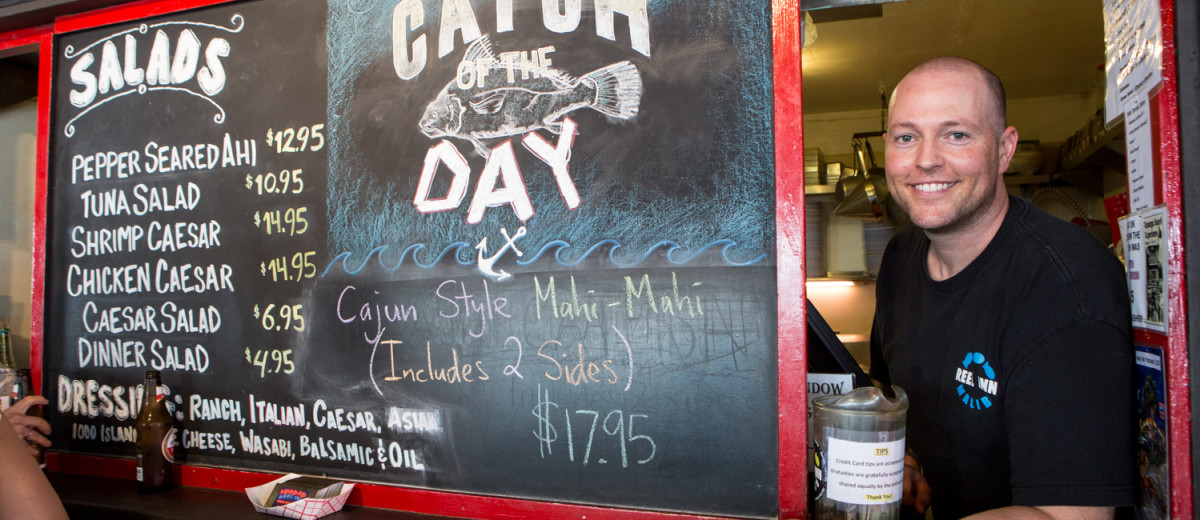 SALADS
PEPPER SEARED AHI $12.95
TUNA SALAD $10.95
SHRIMP CAESAR $14.95
CHICKEN CAESAR $14.95
CAESAR SALAD $6.95
DINNER SALAD $4.95
RANCH, ITALIAN, CAESAR, ASIAN
CHEESE, WASABI, BALSAMIC & OIL
CATCH
OF THE
DAY
Cajun Style Mahi-Mahi
(Includes 2 Sides)
$17.95
REEL INN
MALIBU
TIPS
Credit Card tips are
Gratuities are gratefully
shared equally by the
Thank You!